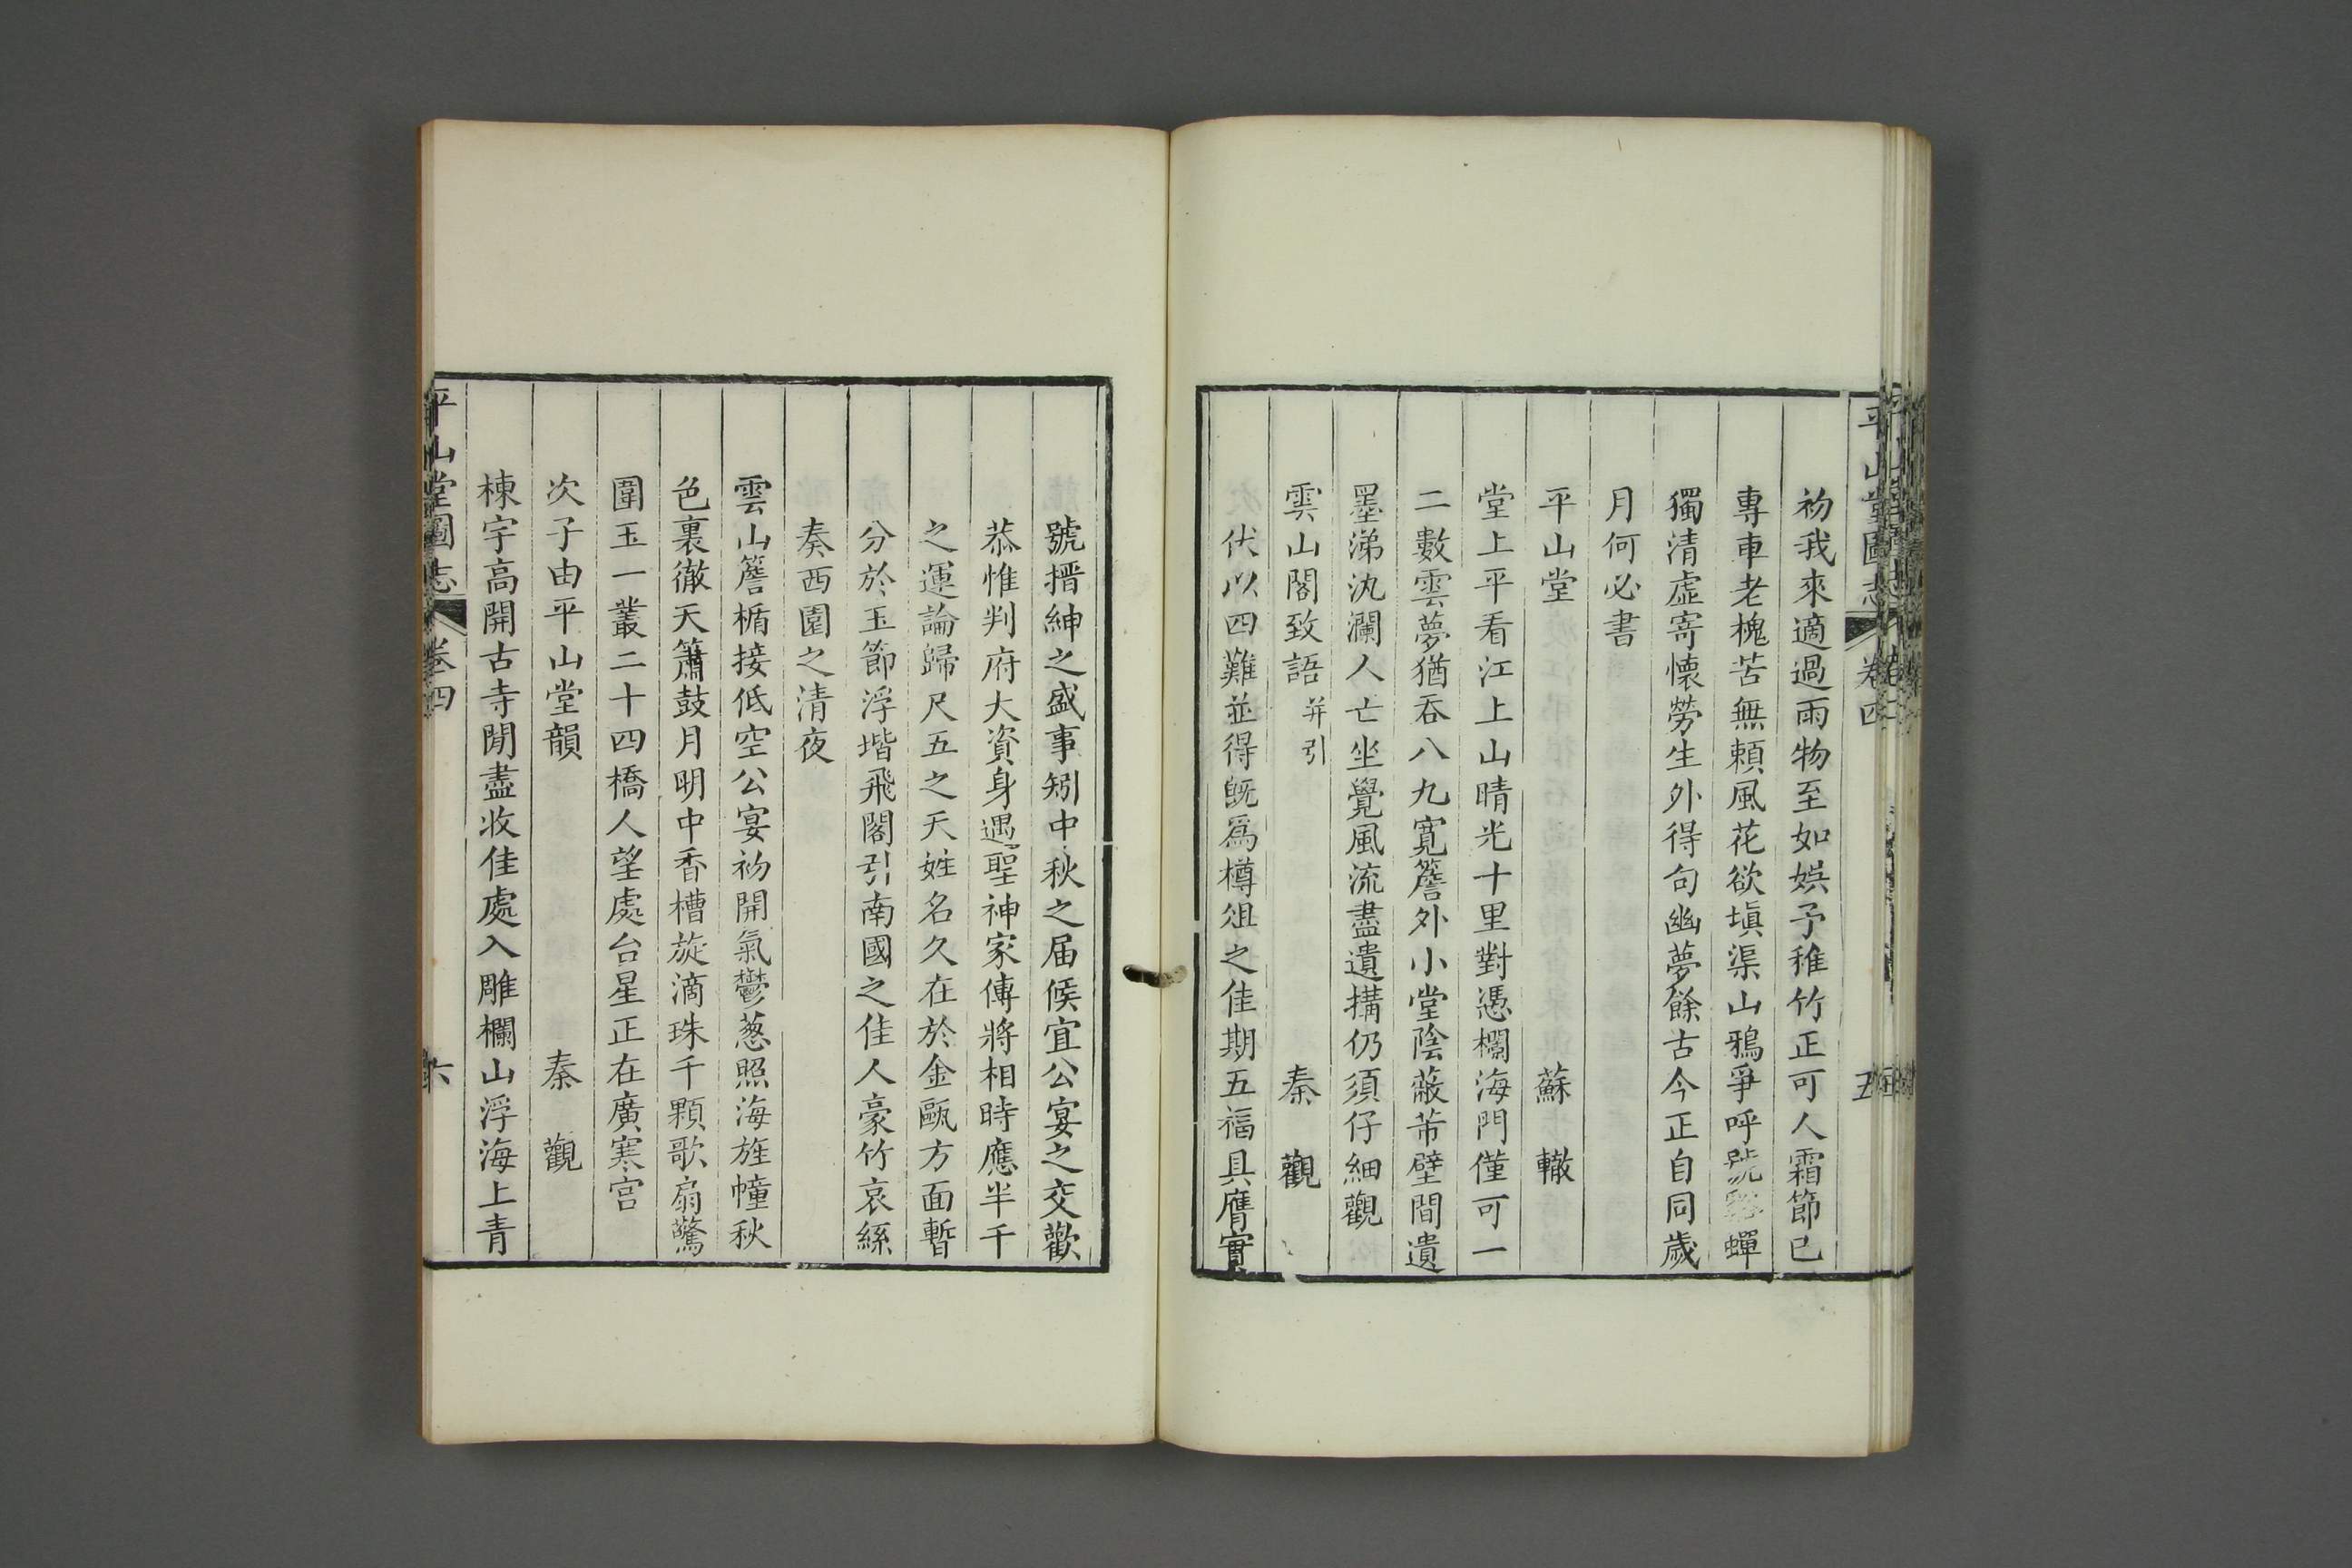 平山堂圖志 卷四 五
初我來適過雨物至如娛予稚竹正可人霜節已
專車老槐苦無賴風花欲塡渠山鴉爭呼號谿蟬
獨清虛寄懷勞生外得句幽夢餘古今正自同歲
月何必書
平山堂 蘇轍
堂上平看江上山晴光十里對憑欄海門僅可一
二數雲夢猶吞八九寬簷外小堂陰蔽芾壁間遺
墨涕汍瀾人亡坐覺風流盡遺搆仍須仔細觀
雲山閣致語 并引 秦觀
伏以四難並得旣爲樽俎之佳期五福具膺實
號搢紳之盛事矧中秋之届候宜公宴之交歡
恭惟判府大資身遇聖神家傳將相時應半千
之運論歸尺五之天姓名久在於金甌方面暫
分於玉節浮堦飛閣引南國之佳人豪竹哀絲
奏西園之清夜
雲山簷楯接低空公宴初開氣鬱葱照海旌幢秋
色裏徹天簫鼓月明中香槽旋滴珠千顆歌扇驚
圍玉一叢二十四橋人望處台星正在廣寒宫
次子由平山堂韻 秦觀
棟宇高開古寺閒盡收佳處入雕欄山浮海上青
平山堂圖志 卷四 六